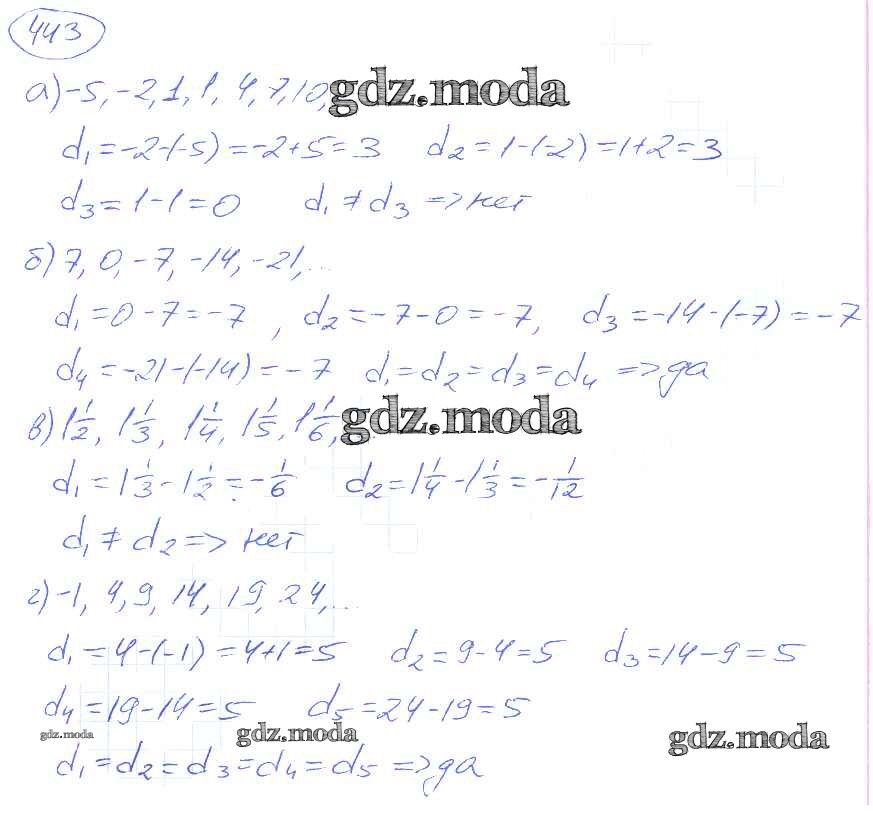 443
а) -5, -2, 1, 1, 4, 7, 10, gdz.moda
d₁ = -2-(-5) = -2+5 = 3 d₂ = 1-(-2) = 1+2 = 3
d₃ = 1-1 = 0 d₁ ≠ d₃ => нет
б) 7, 0, -7, -14, -21, ...
d₁ = 0-7 = -7, d₂ = -7-0 = -7, d₃ = -14-(-7) = -7
d₄ = -21-(-14) = -7 d₁ = d₂ = d₃ = d₄ => да
в) 1 1/2, 1 1/3, 1 1/4, 1 1/5, 1 1/6, gdz.moda
d₁ = 1 1/3 - 1 1/2 = -1/6 d₂ = 1 1/4 - 1 1/3 = -1/12
d₁ ≠ d₂ => нет
г) -1, 4, 9, 14, 19, 24, ...
d₁ = 4-(-1) = 4+1 = 5 d₂ = 9-4 = 5 d₃ = 14-9 = 5
d₄ = 19-14 = 5 d₅ = 24-19 = 5
gdz.moda gdz.moda gdz.moda
d₁ = d₂ = d₃ = d₄ = d₅ => да